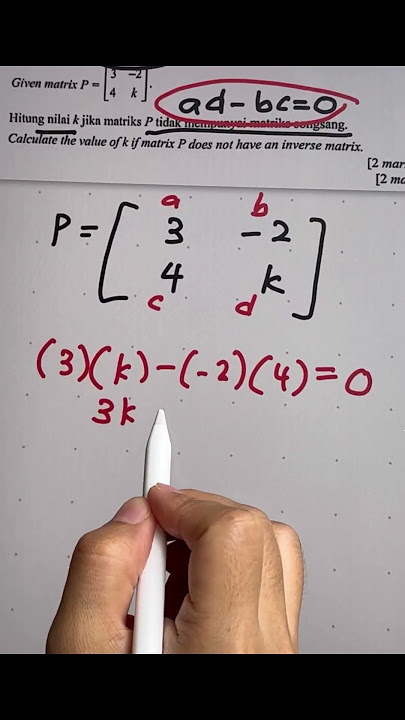 Given matrix P = [3 -2
4 k].
ad - bc = 0
Hitung nilai k jika matriks P tidak mempunyai matriks songsang.
Calculate the value of k if matrix P does not have an inverse matrix.
[2 mar
[2 ma
a b
P = [3 -2
4 k]
c d
(3)(k) - (-2)(4) = 0
3k